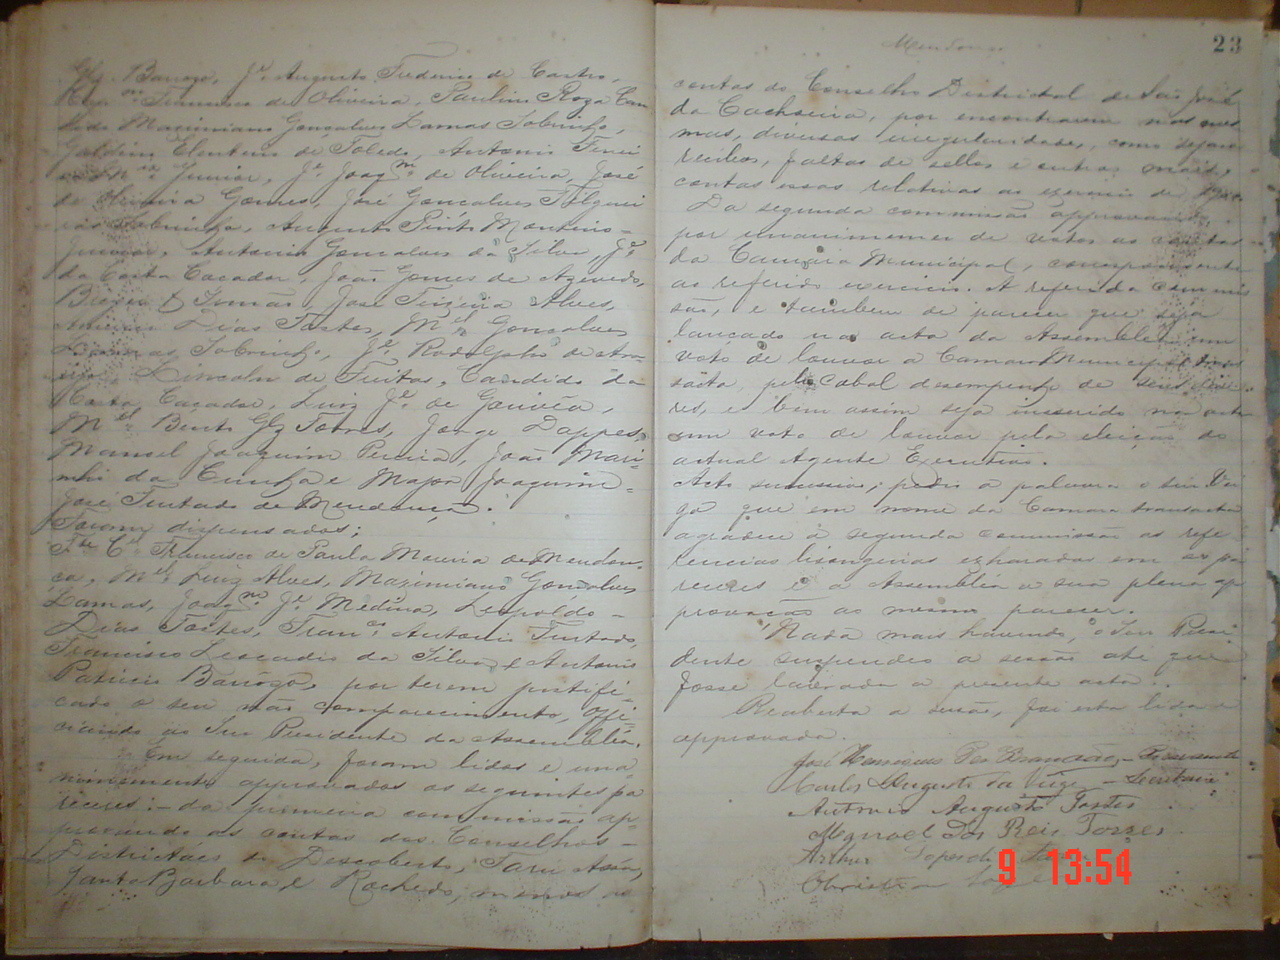 Glz. Barroso, Je. Augusto Frederico de Castro,
Francisco de Oliveira, Paulino Roza
Maximiano Gonçalves Lamas Sobrinho,
Galdino Eleuterio de Toledo, Antonio
Junior, Je. Joaqm. de Oliveira, José
de Oliveira Gomes, José Gonçalves Folguei
ras Sobrinho, Augusto Pinto Monteiro
Junior, Antonio Gonçalves da Silva, Je.
da Costa Caçador, João Gomes de Azevedo,
& Irmão, José Teixeira Alves,
Americo Dias Tostes, Mel. Gonçalves
Lamas Sobrinho, Je. Rodolpho de Arau
jo, Lincoln de Freitas, Candido da
Costa Caçador, Luiz Je. de Gouvêa,
Mel. Bento Glz Torres, Jorge Dappes,
Manoel Joaquim Pereira, João Mari-
nho da Cunha e Major Joaquim
José Furtado de Mendonça.
Foram dispensados;
Francisco de Paula Moreira de Mendon
ça, Mel. Luiz Alves, Maximiano Gonçalves
Lamas, Joaqm. Je. Medina, Leopoldo
Dias Tostes, Franco. Antonio Furtado,
Francisco Leocadio da Silva e Antonio
Patricio Barroso, por terem justifi-
cado o seu não comparecimento, offi-
ciando ao Snr Presidente da Assembléa.
Em seguida, foram lidos e una-
nimemente approvados os seguintes pa
receres: - da primeira commissão ap-
provando as contas dos Conselhos
Districtaes do Descoberto, Taru Assú,
Santa Barbara e Rochedo, menos as
Mendonça
23
contas do Conselho Districtal de São José
da Cachoeira, por encontrarem nas mes
mas, diversas irregularidades, como sejam
recibos, faltas de sellos e outras mais,
contas essas relativas ao exercicio de
Da segunda commissão approvando
por unanimemer de votos as contas
da Camara Municipal, correspondente
ao referido exercicio. A referida commis
são, é tambem de parecer que seja
lançado na acta da Assembléa um
voto de louvor a Camara Municipal tran
sacta, pelo cabal desempenho de seus deve-
res, e bem assim seja inserido na acta
um voto de louvor pela eleição do
actual Agente Executivo.
Acto successivo, pedio a palavra o Snr Vei
ga que em nome da Camara transacta
agradece á segunda commissão as refe-
rencias lisongeiras exharadas em os pa
receres e a Assembléa a sua plena ap
provação ao mesmo parecer.
Nada mais havendo, o Snr Presi
dente suspendeo a sessão até que
fosse lavrada a presente acta.
Reaberta a sessão, foi esta lida e
approvada.
José Henriques Brandão, - Presidente
Carlos Augusto da Veiga - Secretario
Antonio Augusto Tostes
Manoel dos Reis Torres
Arthur
Christiano
9 13:54